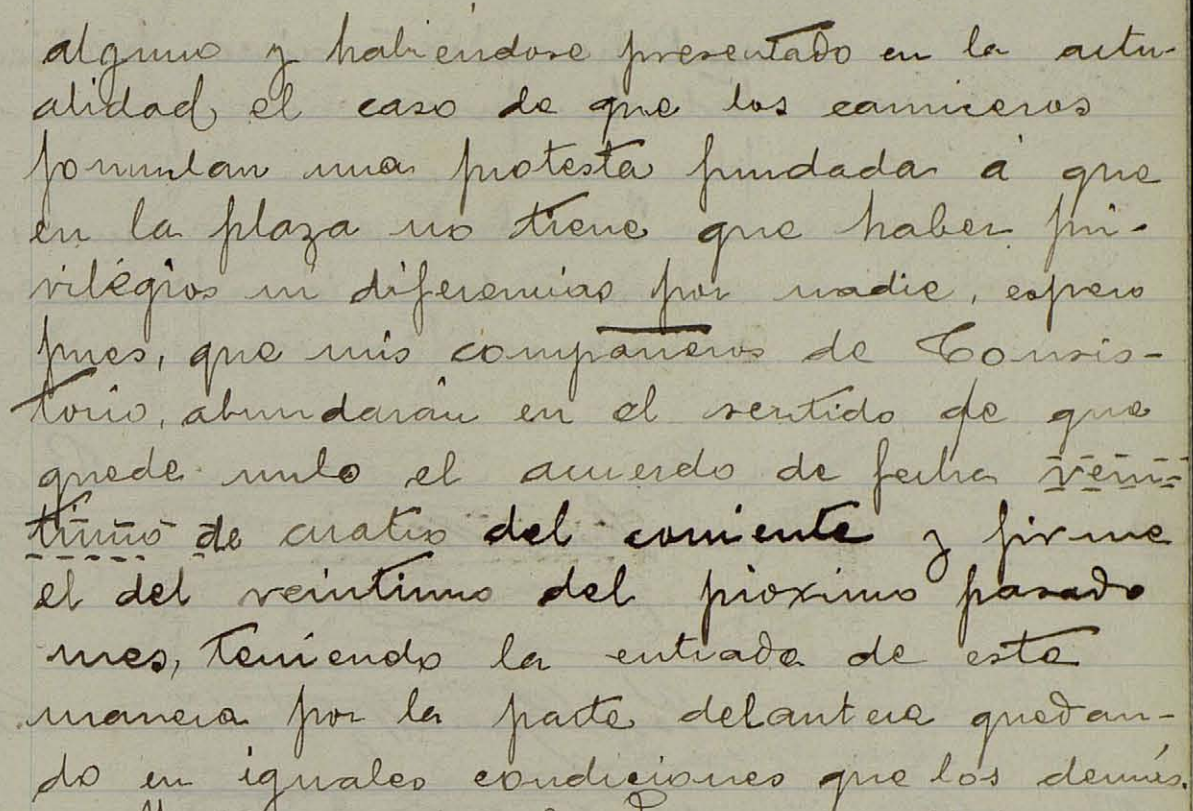 alguno y habiendose presentado en la actu-
alidad el caso de que los carniceros
formulan una protesta fundada á que
en la plaza no tiene que haber pri-
vilégios ni diferencias por nadie, espero
pues, que mis compañeros de Consis-
torio, abundarán en el sentido de que
quede nulo el acuerdo de fecha vein-
tiuno de cuatro del corriente y firme
el del veintiuno del próximo pasado
mes, teniendo la entrada de esta
manera por la parte delantera quedan-
do en iguales condiciones que los demás.